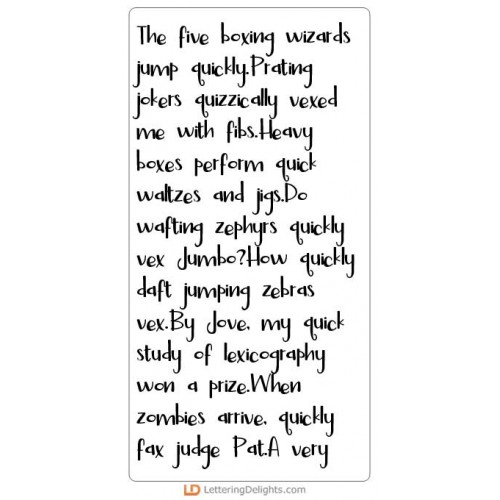 The five boxing wizards
jump quickly.Prating
jokers quizzically vexed
me with fibs.Heavy
boxes perform quick
waltzes and jigs.Do
wafting zephyrs quickly
vex Jumbo?How quickly
daft jumping zebras
vex.By Jove, my quick
study of lexicography
won a prize.When
zombies arrive, quickly
fax judge Pat.A very
LD LetteringDelights.com